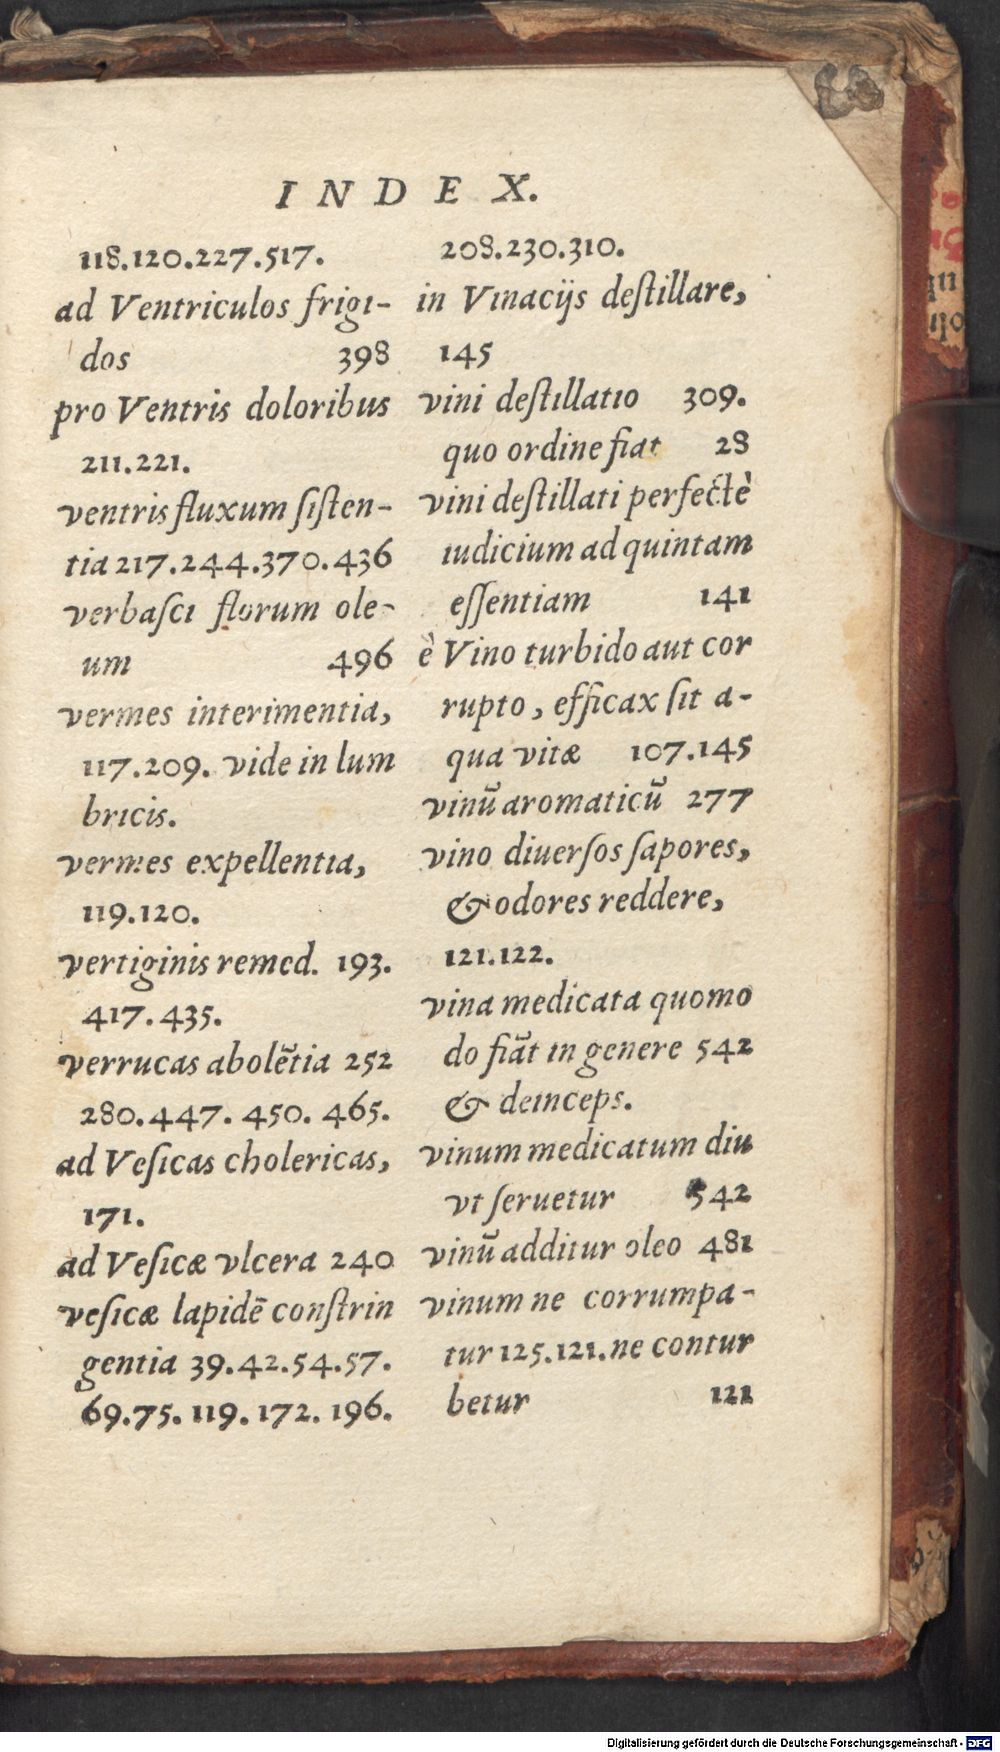 INDEX.
118.120.227.517.
ad Ventriculos frigi-
dos 398
pro Ventris doloribus
211.221.
ventris fluxum ſiſten-
tia 217.244.370.436
verbaſci florum ole-
um 496
vermes interimentia,
117.209. vide in lum
bricis.
vermes expellentia,
119.120.
vertiginis remed. 193.
417.435.
verrucas abolẽtia 252
280.447. 450. 465.
ad Veſicas cholericas,
171.
ad Veſicæ vlcera 240
veſicæ lapidē conſtrin
gentia 39.42.54.57.
69.75. 119. 172. 196.
208.230.310.
in Vinacijs deſtillare,
145
vini deſtillatio 309.
quo ordine fiat 28
vini deſtillati perfectè
iudicium ad quintam
eſſentiam 141
è Vino turbido aut cor
rupto, efficax ſit a-
qua vitæ 107.145
vinū aromaticū 277
vino diuerſos ſapores,
& odores reddere,
121.122.
vina medicata quomo
do fiāt in genere 542
& deinceps.
vinum medicatum diu
vt ſeruetur 542
vinū additur oleo 481
vinum ne corrumpa-
tur 125.121. ne contur
betur 121
Digitalisierung gefördert durch die Deutsche Forschungsgemeinschaft - DFG